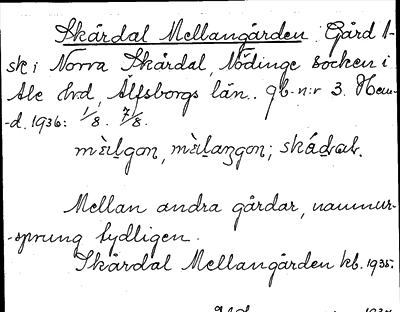 Skårdal Mellangården. Gård 1-
sk i Norra Skårdal, Nödinge socken i
Ale hrd, Älfsborgs län. gb.-n:r 3. Hem-
-d. 1936: 1/8. 7/8.
skǻdal.
Mellan andra gårdar, namnur-
-sprung tydligen.
Skårdal Mellangården kb. 1935.